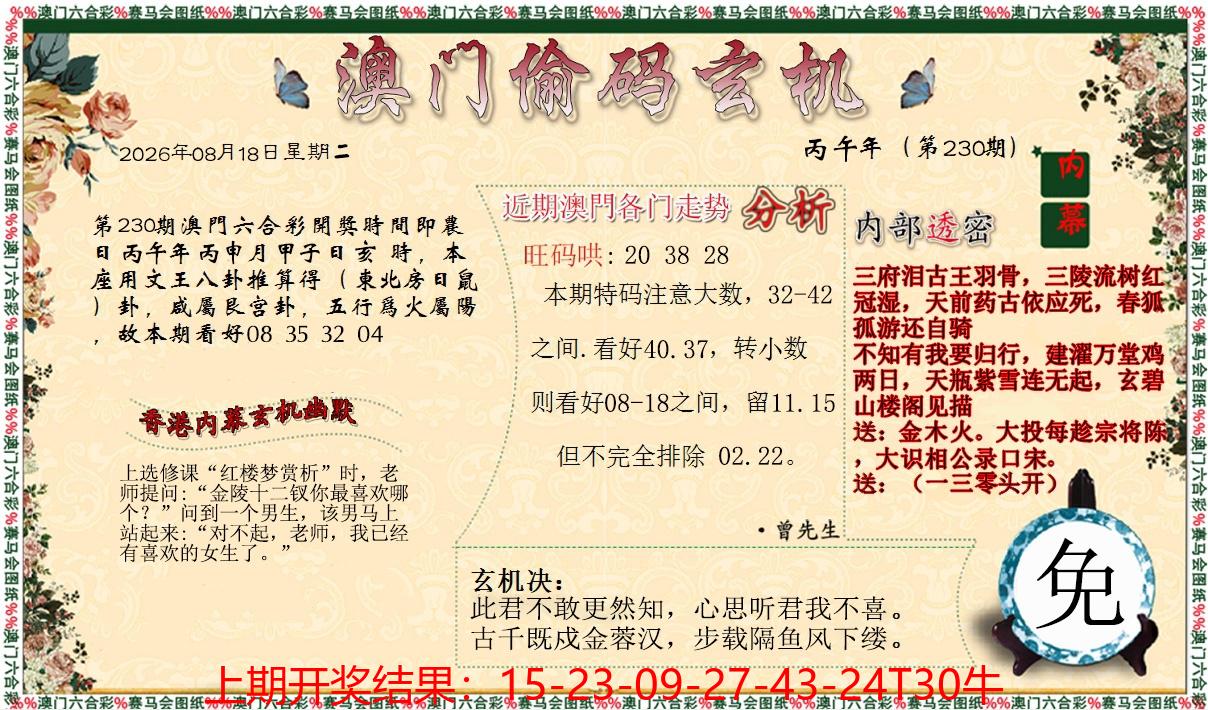 %%澳门六合彩%赛马会图纸%%澳门六合彩%赛马会图纸%%澳门六合彩%赛马会图纸%%澳门六合彩%赛马会图纸%%澳门六合彩%赛马会图纸%%
澳门偷码玄机
2026年08月18日星期二
丙午年（第230期）
内幕
第230期澳門六合彩開獎時間即農
日丙午年丙申月甲子日亥 時，本
座用文王八卦推算得（東北房日鼠
）卦，咸屬艮宫卦，五行爲火屬陽
，故本期看好08 35 32 04
香港内幕玄机幽默
上选修课“红楼梦赏析”时，老
师提问:“金陵十二钗你最喜欢哪
个？”问到一个男生，该男马上
站起来:“对不起，老师，我已经
有喜欢的女生了。”
近期澳門各门走势 分析
旺码哄: 20 38 28
本期特码注意大数，32-42
之间.看好40.37，转小数
则看好08-18之间，留11.15
但不完全排除 02.22。
·曾先生
内部透密
三府泪古王羽骨，三陵流树红
冠湿，天前药古依应死，春狐
孤游还自骑
不知有我要归行，建濯万堂鸡
两日，天瓶紫雪连无起，玄碧
山楼阁见描
送：金木火。大投每趁宗将陈
，大识相公录口宋。
送：（一三零头开）
玄机决:
此君不敢更然知，心思听君我不喜。
古千既戍金蓉汉，步载隔鱼风下缕。
免
上期开奖结果：15-23-09-27-43-24T30牛